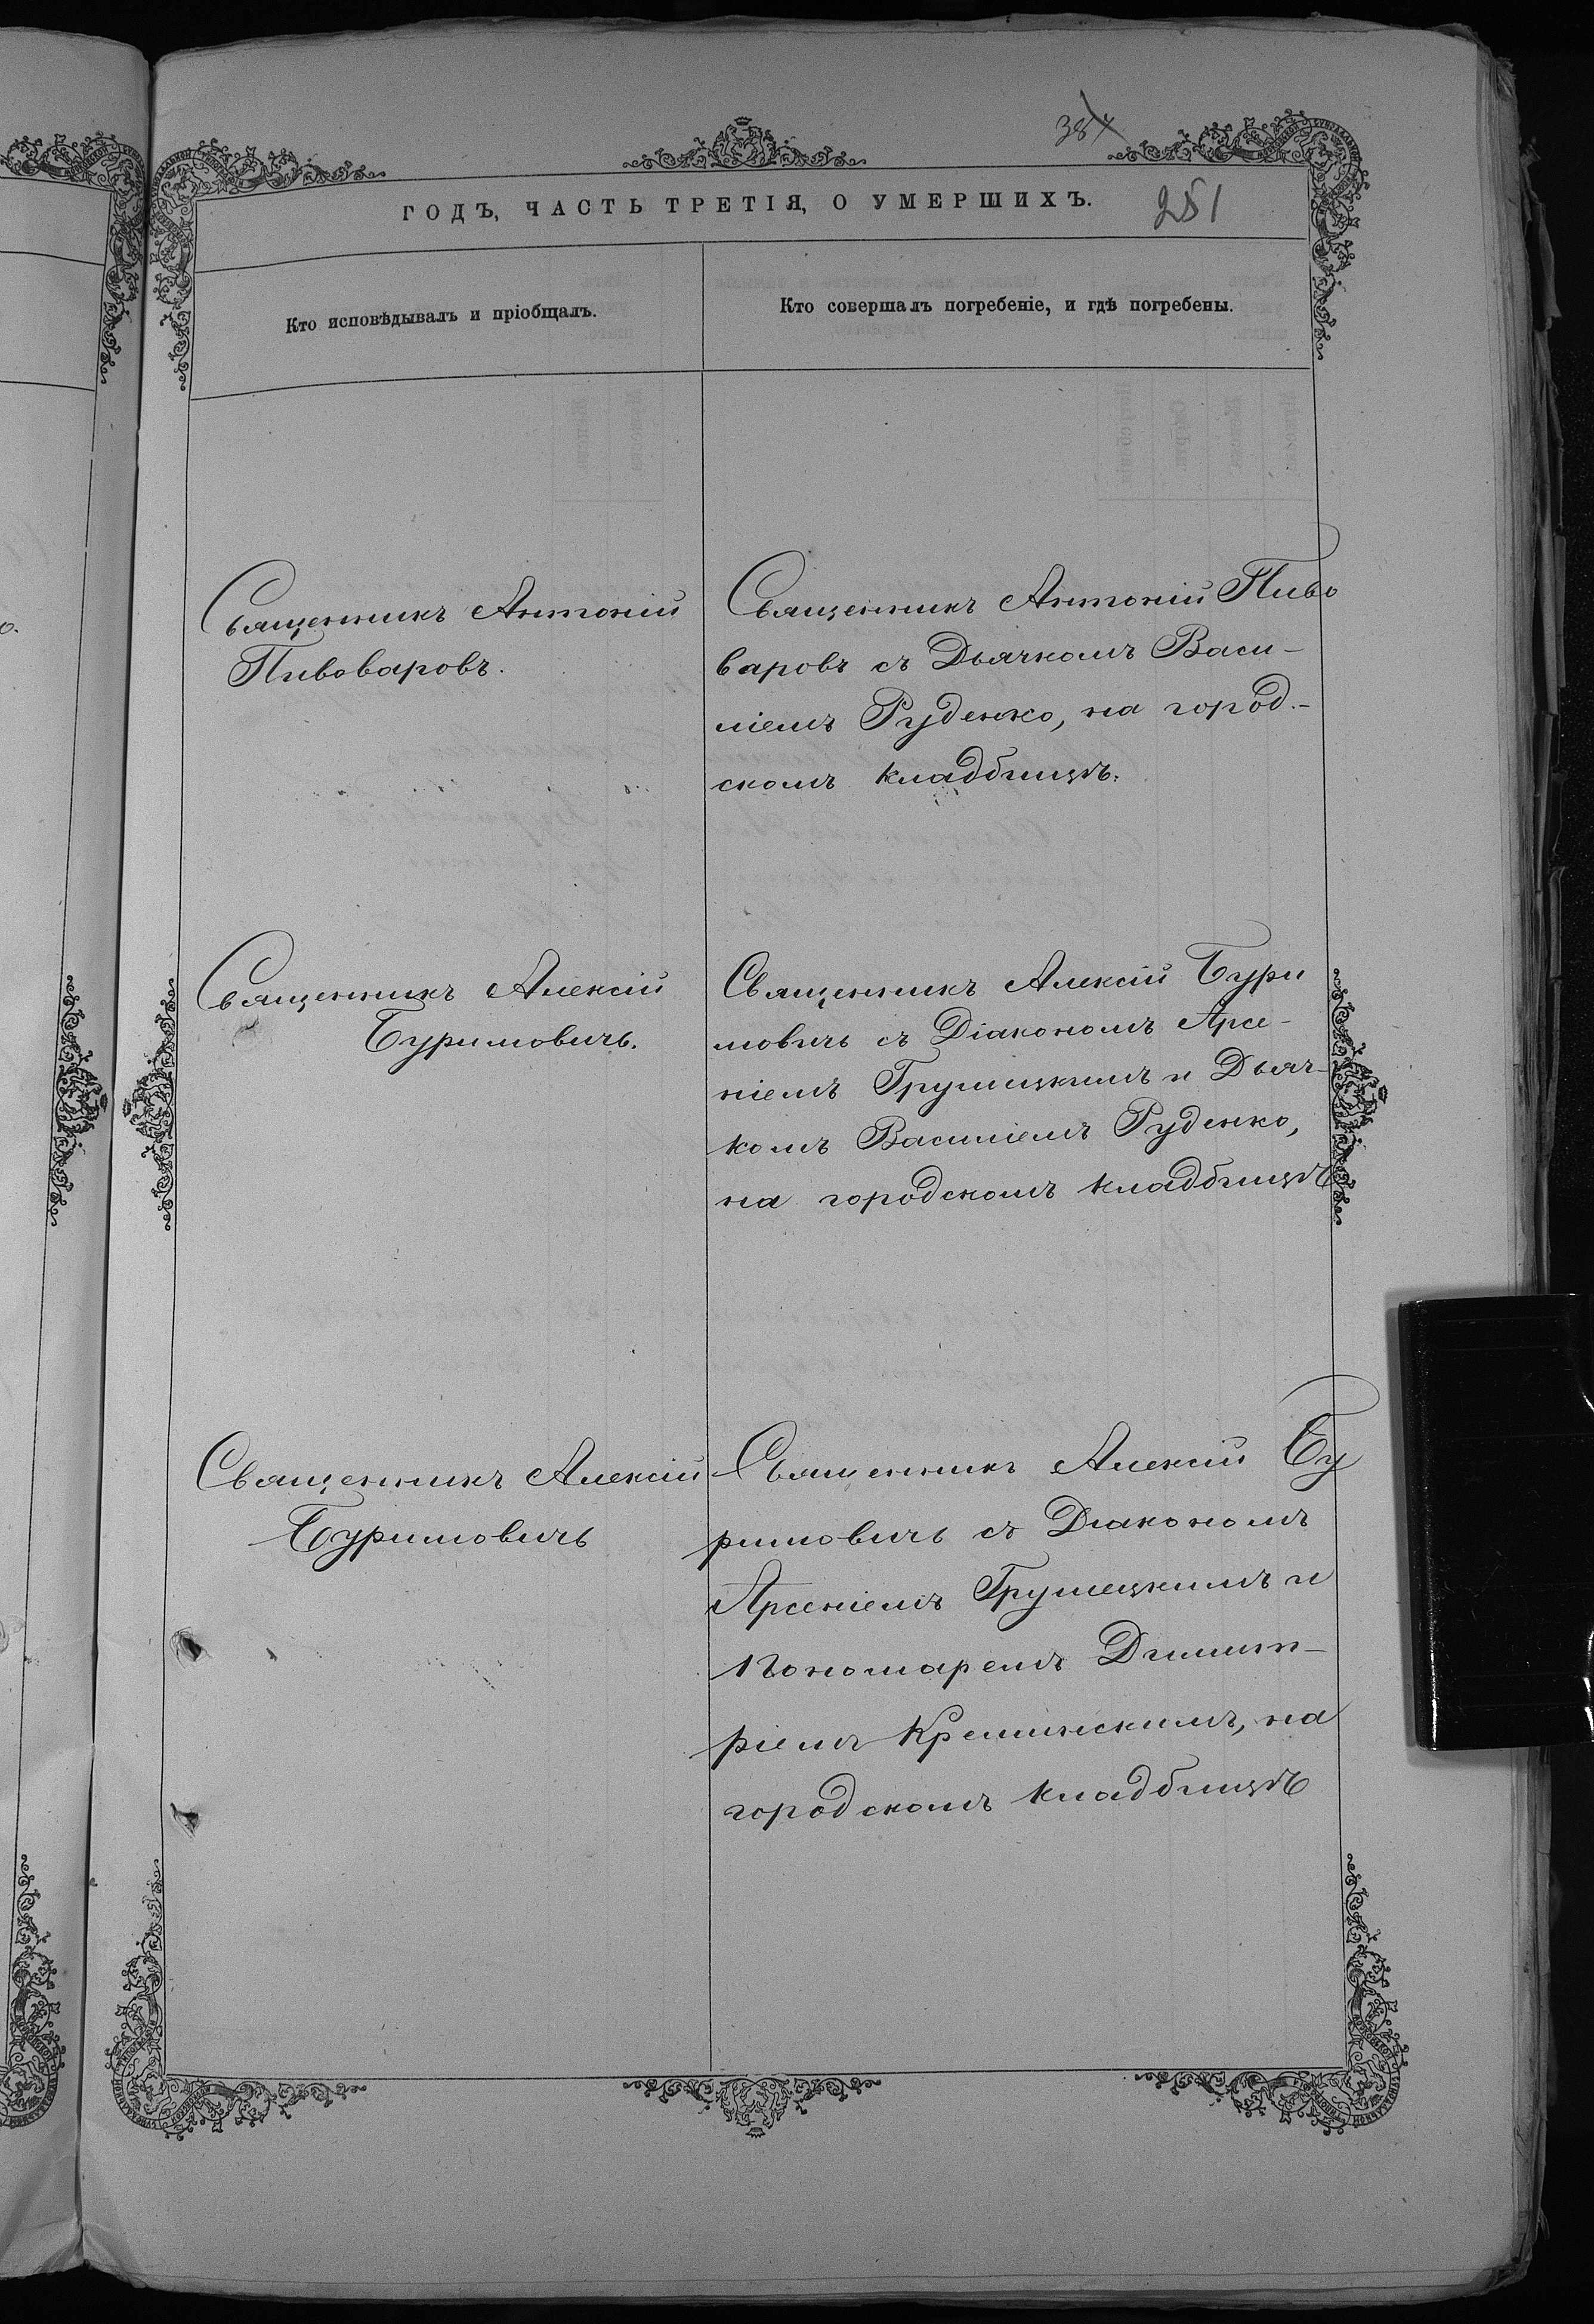 ГОДЪ, ЧАСТЬ ТРЕТІЯ, О УМЕРШИХЪ. 251
Кто исповѣдывалъ и пріобщалъ.
Кто совершалъ погребеніе, и гдѣ погребены.
Священникъ Антоній
Пивоваровъ.
Священникъ Антоній Пиво
варовъ съ Дьячкомъ Васи-
ліемъ Руденко, на город-
скомъ кладбищѣ.
Священникъ Алексій
Буримовичъ.
Священникъ Алексій Бури
мовичъ съ Діакономъ Арсе-
ніемъ Грушецкимъ и Дьяч-
комъ Василіемъ Руденко,
на городскомъ кладбищѣ
Священникъ Алексій
Буримовичъ
Священникъ Алексій Бу
римовичъ съ Діакономъ
Арсеніемъ Грушецкимъ и
Пономаремъ Димит-
ріемъ Креминскимъ, на
городскомъ кладбищѣ